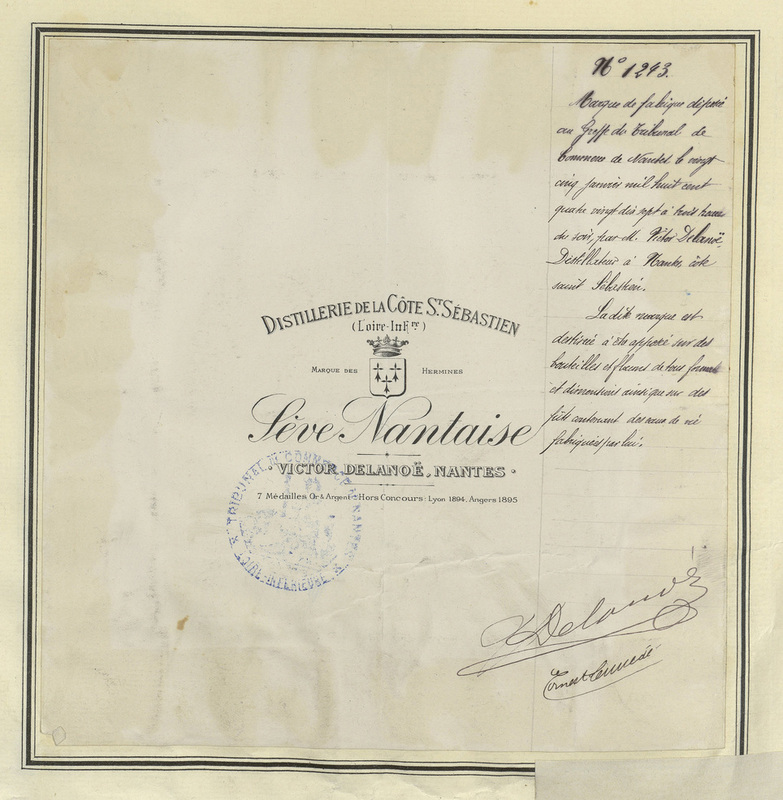 DISTILLERIE DE LA CÔTE ST SÉBASTIEN
(Loire-Infre)
MARQUE DES HERMINES
Sève Nantaise
VICTOR DELANOË, NANTES
7 Médailles Or & Argent Hors Concours: Lyon 1894, Angers 1895
TRIBUNAL DE COMMERCE DE NANTES
LOIRE-INFÉRIEURE
No 1293.
Marque de fabrique déposée
au Greffe du Tribunal de
Commerce de Nantes le vingt
cinq janvier mil huit cent
quatre vingt dix sept à trois heures
du soir, par M. Victor Delanoë,
Distillateur à Nantes, côte
saint Sébastien.
Ladite marque est
destinée à être apposée sur des
bouteilles et flacons de tous formats
et dimensions ainsi que sur des
fûts contenant des eaux de vie
fabriquées par lui.
V Delanoë
Ernest